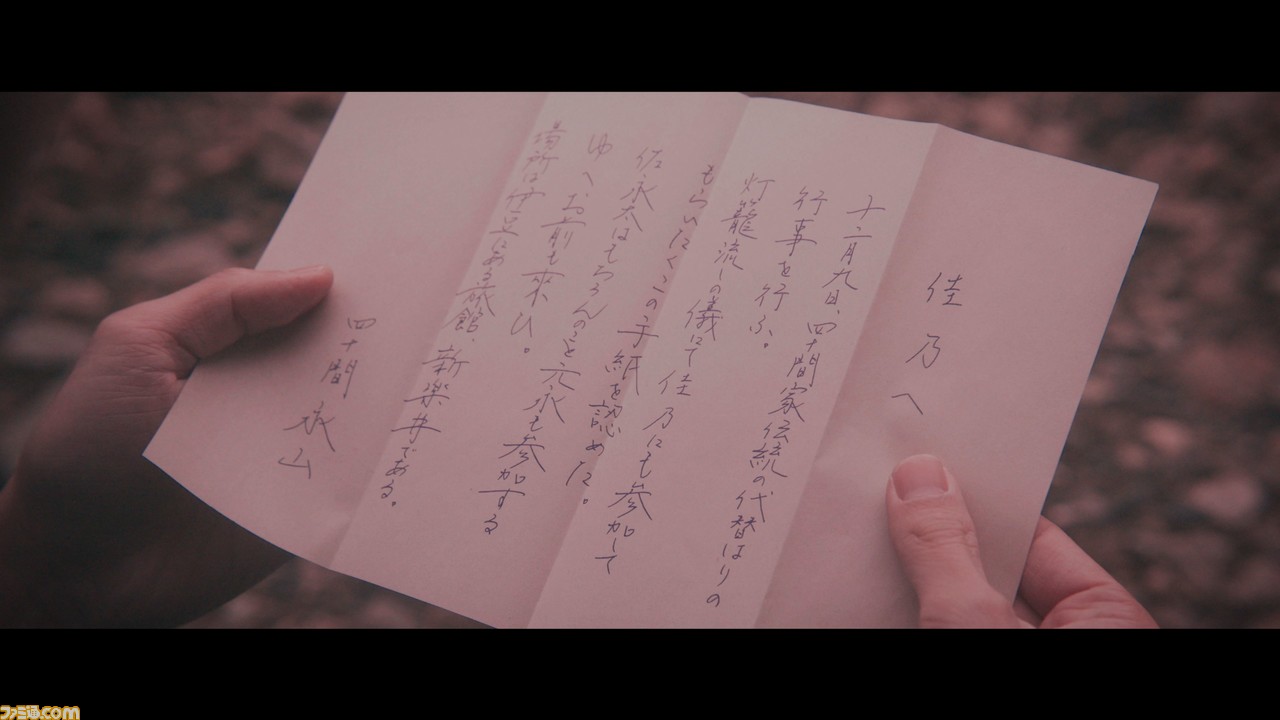 佳乃へ
十二月九日、四十間家伝統の代替はりの
行事を行ふ。
灯籠流しの儀にて佳乃にも参加して
もらひたくこの手紙を認めた。
佐永太はもちろんのこと元永も参加する
ゆへ、お前も来ひ。
場所は伊豆にある旅館、新楽井である。
四十間永山
ファミ通.com